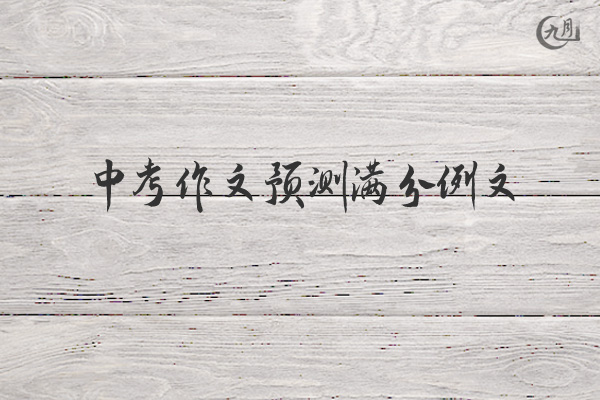 九月
中考作文预测满分例文